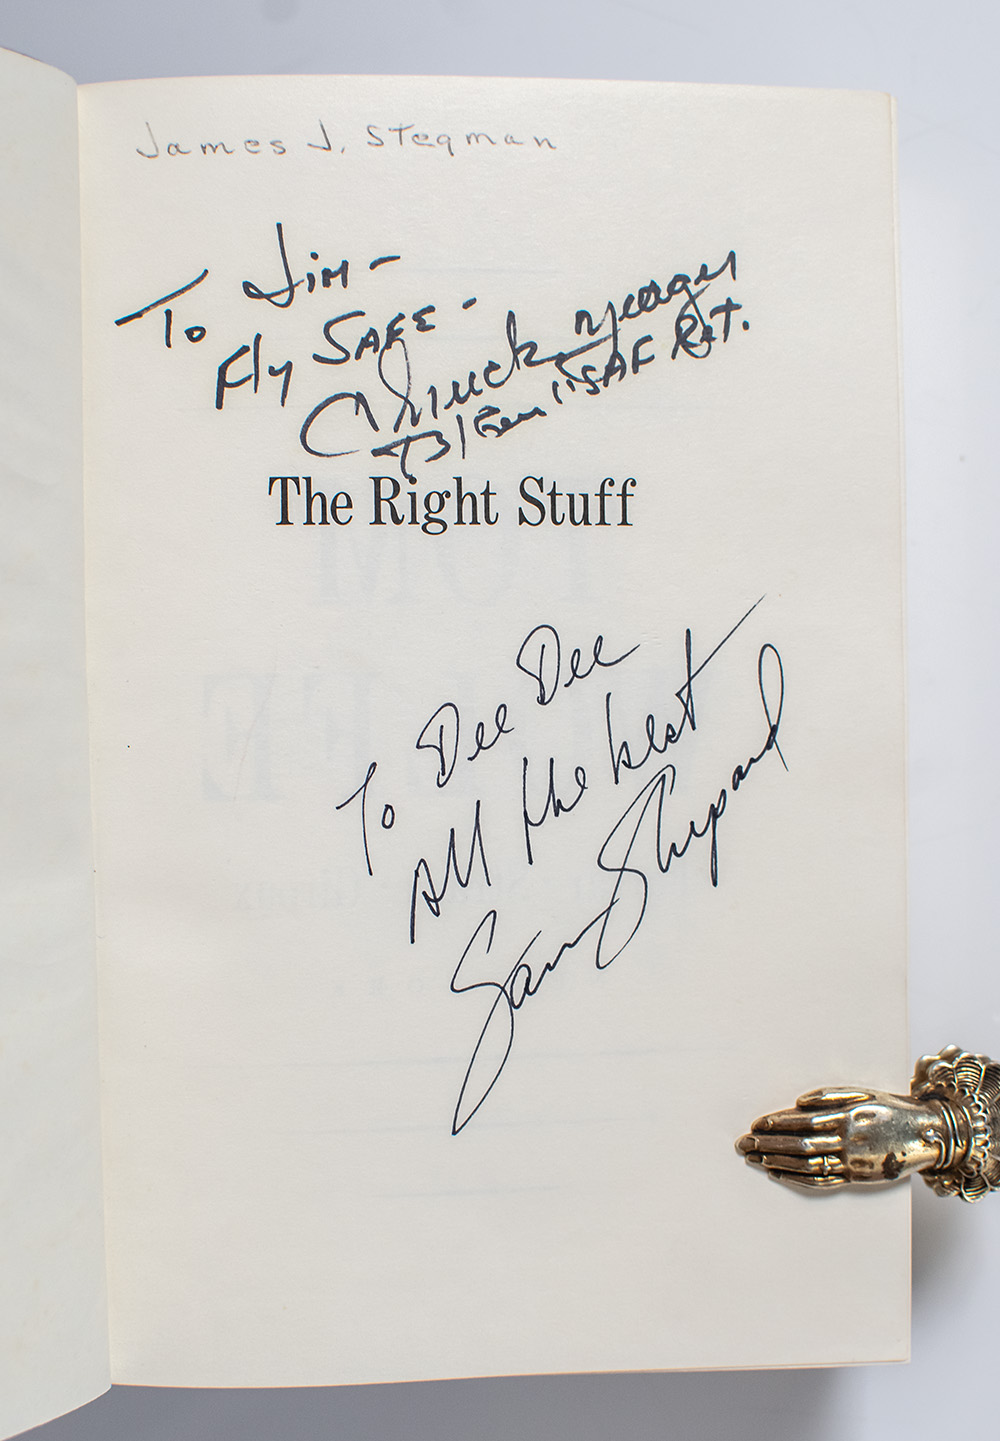 James J. Stegman
To Jim -
Fly SAFE -
Chuck Yeager
B/Gen USAF Ret.
The Right Stuff
To Dee Dee
All the best
Sam Shepard